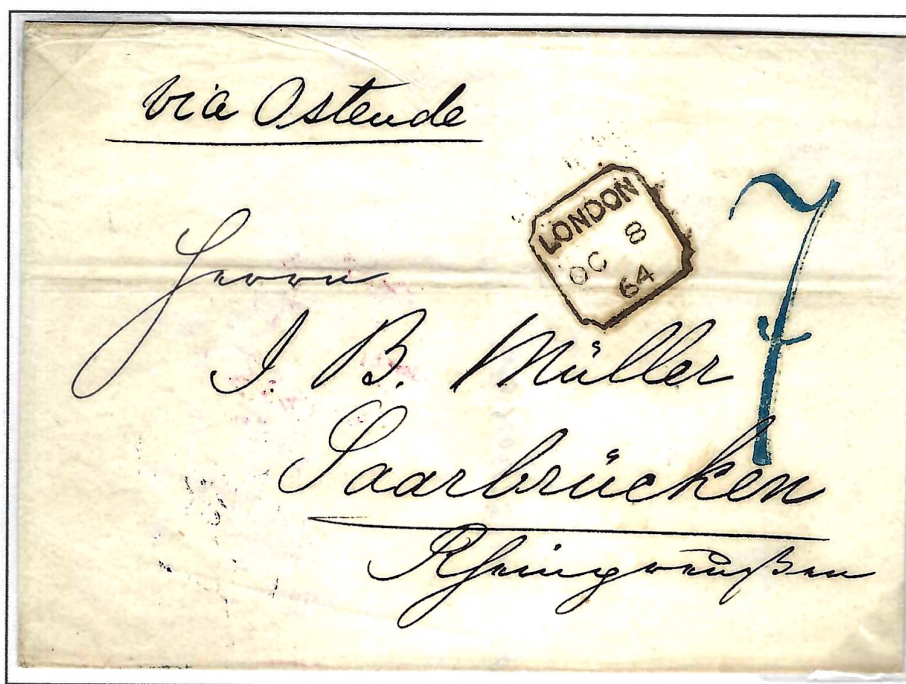 via Ostende
LONDON
OC 8
64
7
Herrn
J. B. Müller
Saarbrücken
Rheinpreußen